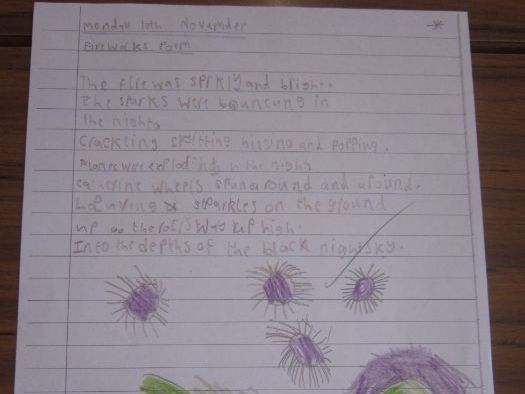 monday 10th November
Fireworks Poem
The fire was sprkly and bright.
The sparks were bouncung in
the night.
Crackling spitting hisyng and popping.
Planes were exploding in the night
catherine wheels spun around and around.
Leaving sparkles on the ground
up the was up high.
Into the depths of the black night sky.